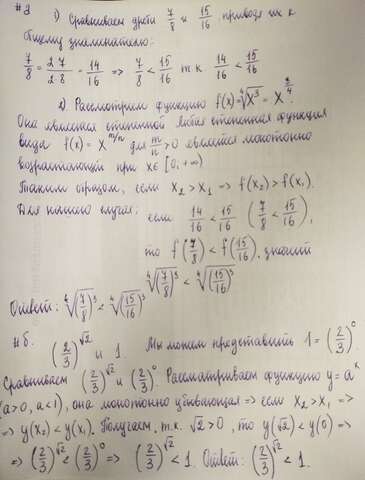 #2 1) Сравниваем дроби 7/8 и 15/16, приводя их к
общему знаменателю:
7/8 = 2·7/2·8 = 14/16 => 7/8 < 15/16 т.к 14/16 < 15/16
2) Рассмотрим функцию f(x) = ⁴√x³ = x^(3/4).
Она является степенной любая степенная функция
вида f(x) = x^(m/n) для m/n > 0 является монотонно
возрастающей при x∈[0;+∞)
Таким образом, если x₂ > x₁ => f(x₂) > f(x₁).
Для нашего случая: если 14/16 < 15/16 (7/8 < 15/16),
то f(7/8) < f(15/16), значит
⁴√(7/8)³ < ⁴√(15/16)³
Ответ: ⁴√(7/8)³ < ⁴√(15/16)³
#б. (2/3)^√2 и 1. Мы можем представить 1 = (2/3)⁰.
Сравниваем (2/3)^√2 и (2/3)⁰. Рассматриваем функцию y = a^x
(a>0, a<1), она монотонно убывающая => если x₂ > x₁ =>
=> y(x₂) < y(x₁). Получаем, т.к. √2 > 0, то y(√2) < y(0) =>
=> (2/3)^√2 < (2/3)⁰ => (2/3)^√2 < 1. Ответ: (2/3)^√2 < 1.